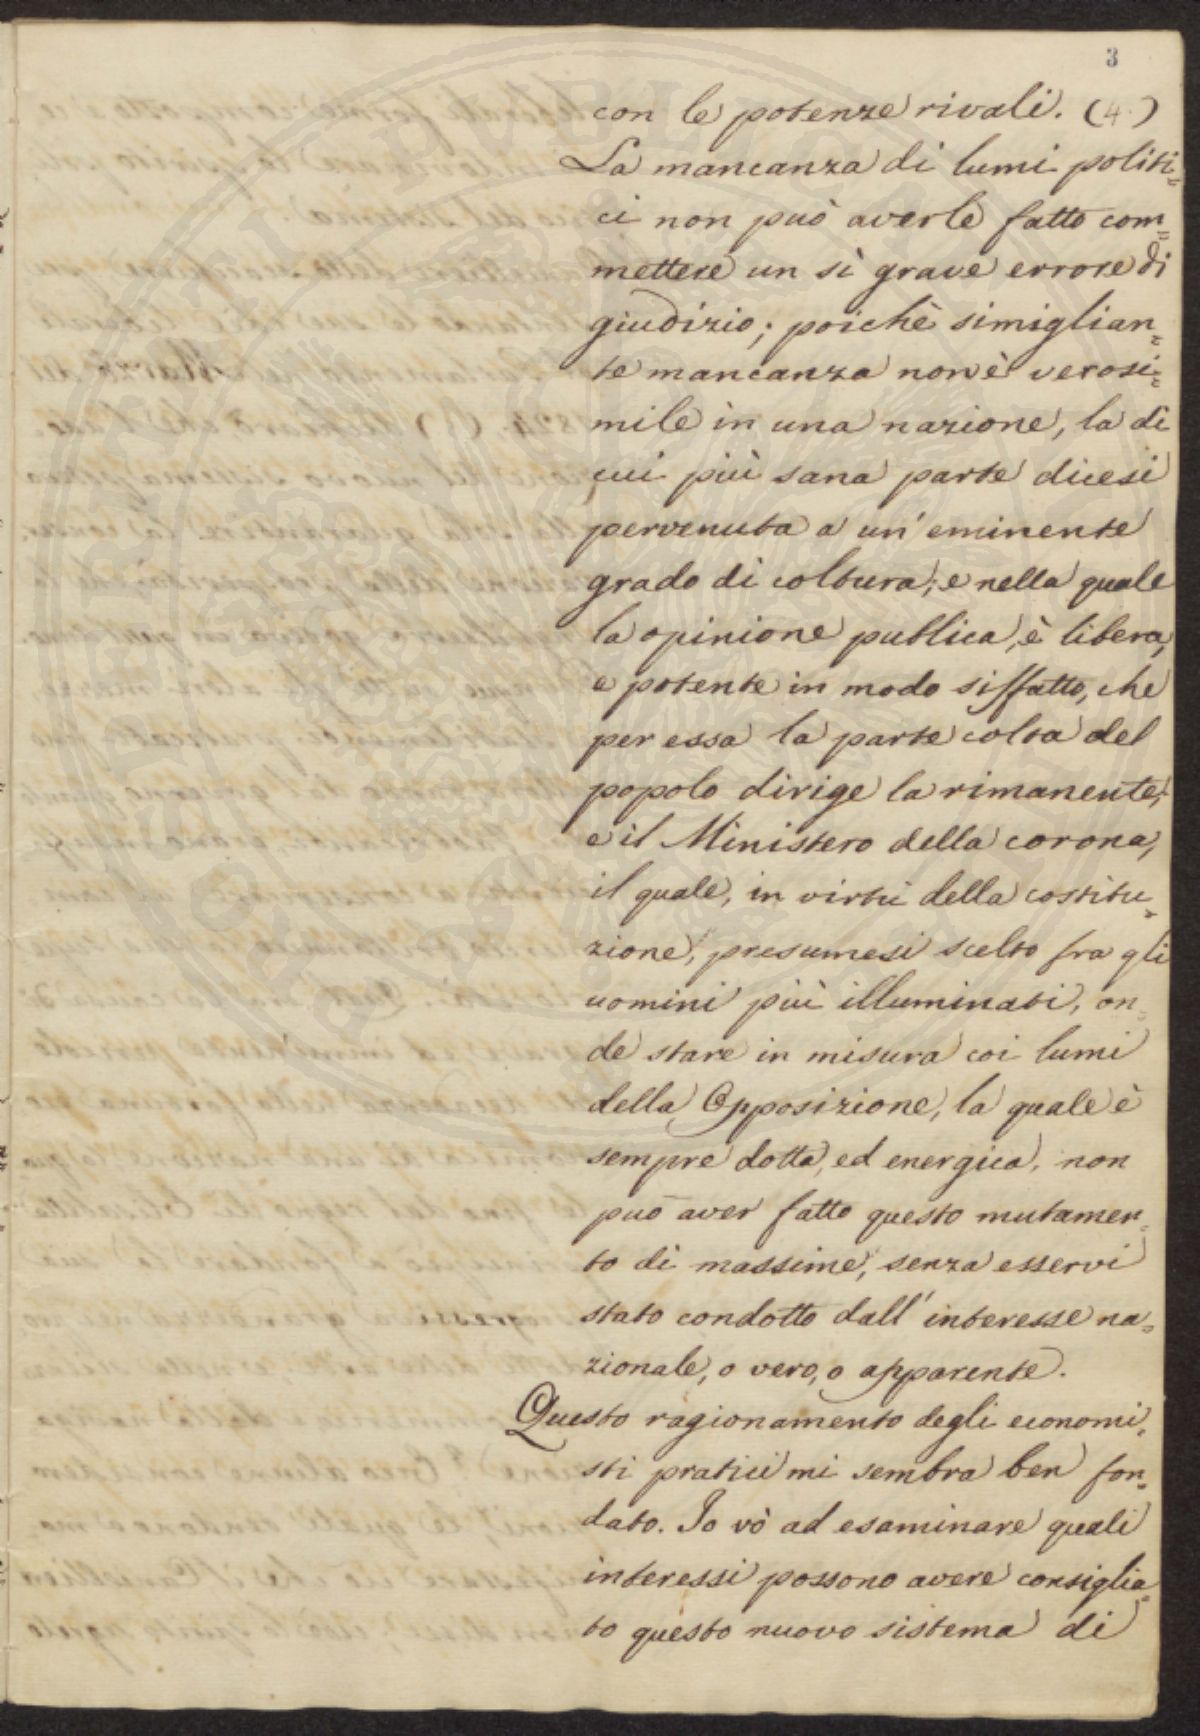 3
con le potenze rivali. (4.)
La mancanza di lumi politi=
ci non può averle fatto com=
mettere un sì grave errore di
giudizio; poichè simiglian=
te mancanza non è verosi=
mile in una nazione, la di
cui più sana parte dicesi
pervenuta a un' eminente
grado di coltura; e nella quale
la opinione publica, è libera,
e potente in modo siffatto, che
per essa la parte colta del
popolo dirige la rimanente;
e il Ministero della corona,
il quale, in virtù della costitu=
zione, presumesi scelto fra gli
uomini più illuminati, on=
de stare in misura coi lumi
della Opposizione, la quale è
sempre dotta, ed energica, non
può aver fatto questo mutamen=
to di massime, senza esservi
stato condotto dall' interesse na=
zionale, o vero, o apparente.
Questo ragionamento degli economi=
sti pratici mi sembra ben fon=
dato. Io vò ad esaminare quali
interessi possono avere consiglia=
to questo nuovo sistema di